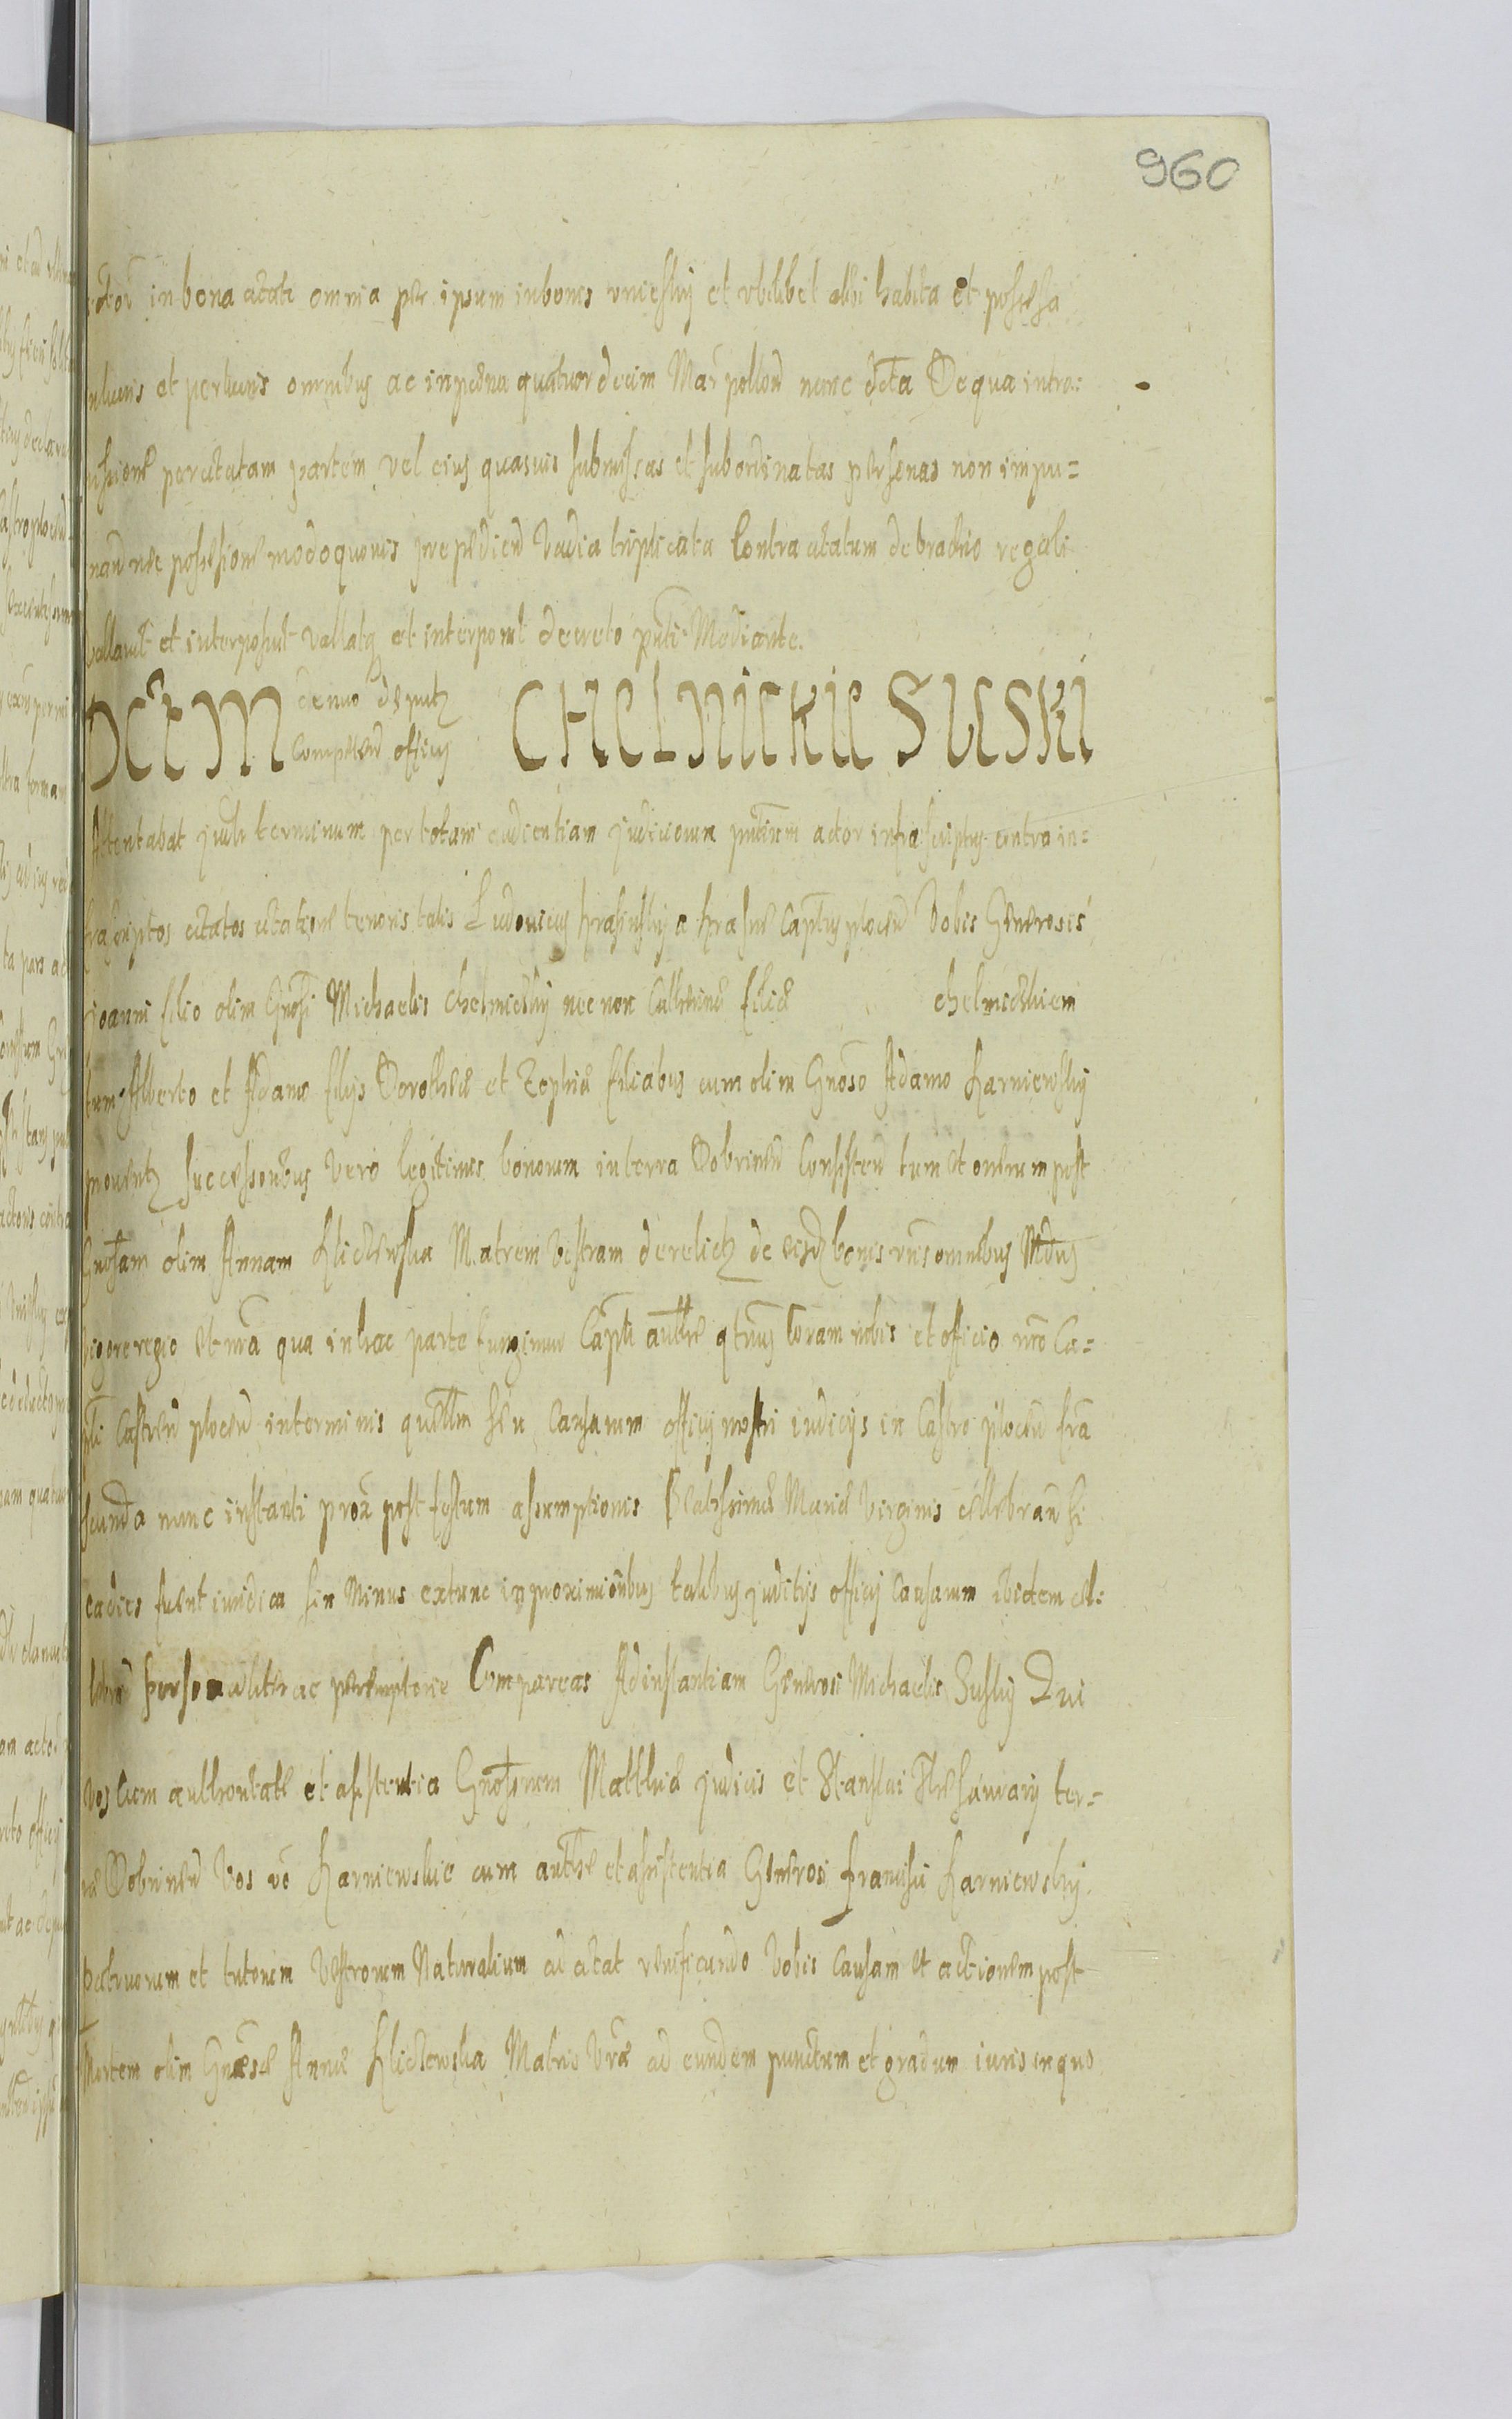 960
actori in bona citati omnia per ipsum in bonis vniesky et vbilibet alibi habita et possessa
mluens et pertinens omnibus ac in poena quatuordecim Mar pollod nunc dcta De qua intro:
missione per citatam partem vel eius quasuis submissas et subordinatas personas non impu=
nand nec possessione modo quouis prepediend Vadia triplicata Contra citatum de brachio regali
vallauit et interposuit vallatq et interponit decreto pnti Mediante.
DCEM denuo deputz CHELMICKIE SUSKI
Compoend officij
Attentabat juste terminum per totam audientiam judiciorum pntium actor infrascriptus contra in=
frascriptos citatos citatione tenoris talis Ludouicus Krasinsky a Krasne Captus plocen Vobis Generosis
Joanni filio olim Gnosi Michaelis Chelmicky nec non Catherinæ filiæ chelmickiem
tum Alberto et Adamo filijs Dorotheæ et Zophiæ filiabus cum olim Gnoso Adamo Karniewsky
prouentz successoribus Vero legitimis bonorum in terra Dobrinen Consisten tum et onerum post
Gnosam olim Annam Kliczewska Matrem Vestram derelictz de eisdz bonis vris omnibus Mdus
vigore regio et nra qua in hac parte fungimur Capti authte qtnus Coram nobis et officio nro Ca=
pli Castren plocen in terminis querellm seu Causarum officij nostri iudicijs in Castro plocen fra
secunda nunc instanti prox post festum assumptionis Beatissimæ Mariæ Virginis celebran si
ea dies fuerit iuridica sin Minus extunc in proximioribus talibus juditijs officij Causarum ibidem cel:
lebran personaliter ac peremptorie Compareas Ad instantiam Generosi Michaelis Susky Qui
vos cum authoritate et assistentia Gnosorum Matthiæ judicis et Stanislai Thesaurarij ter=
ræ Dobrinen Vos vo Karniewskie cum authte et assistentia Generosi Francisci Karniewsky
patruorum et tutorum Vestrorum Naturalium ad citat reuificando Vobis Causam et actionem post
Mortem olim Gnosæ Annæ Kliczewska Matris Vræ ad eundem punctum et gradum iuris in quo